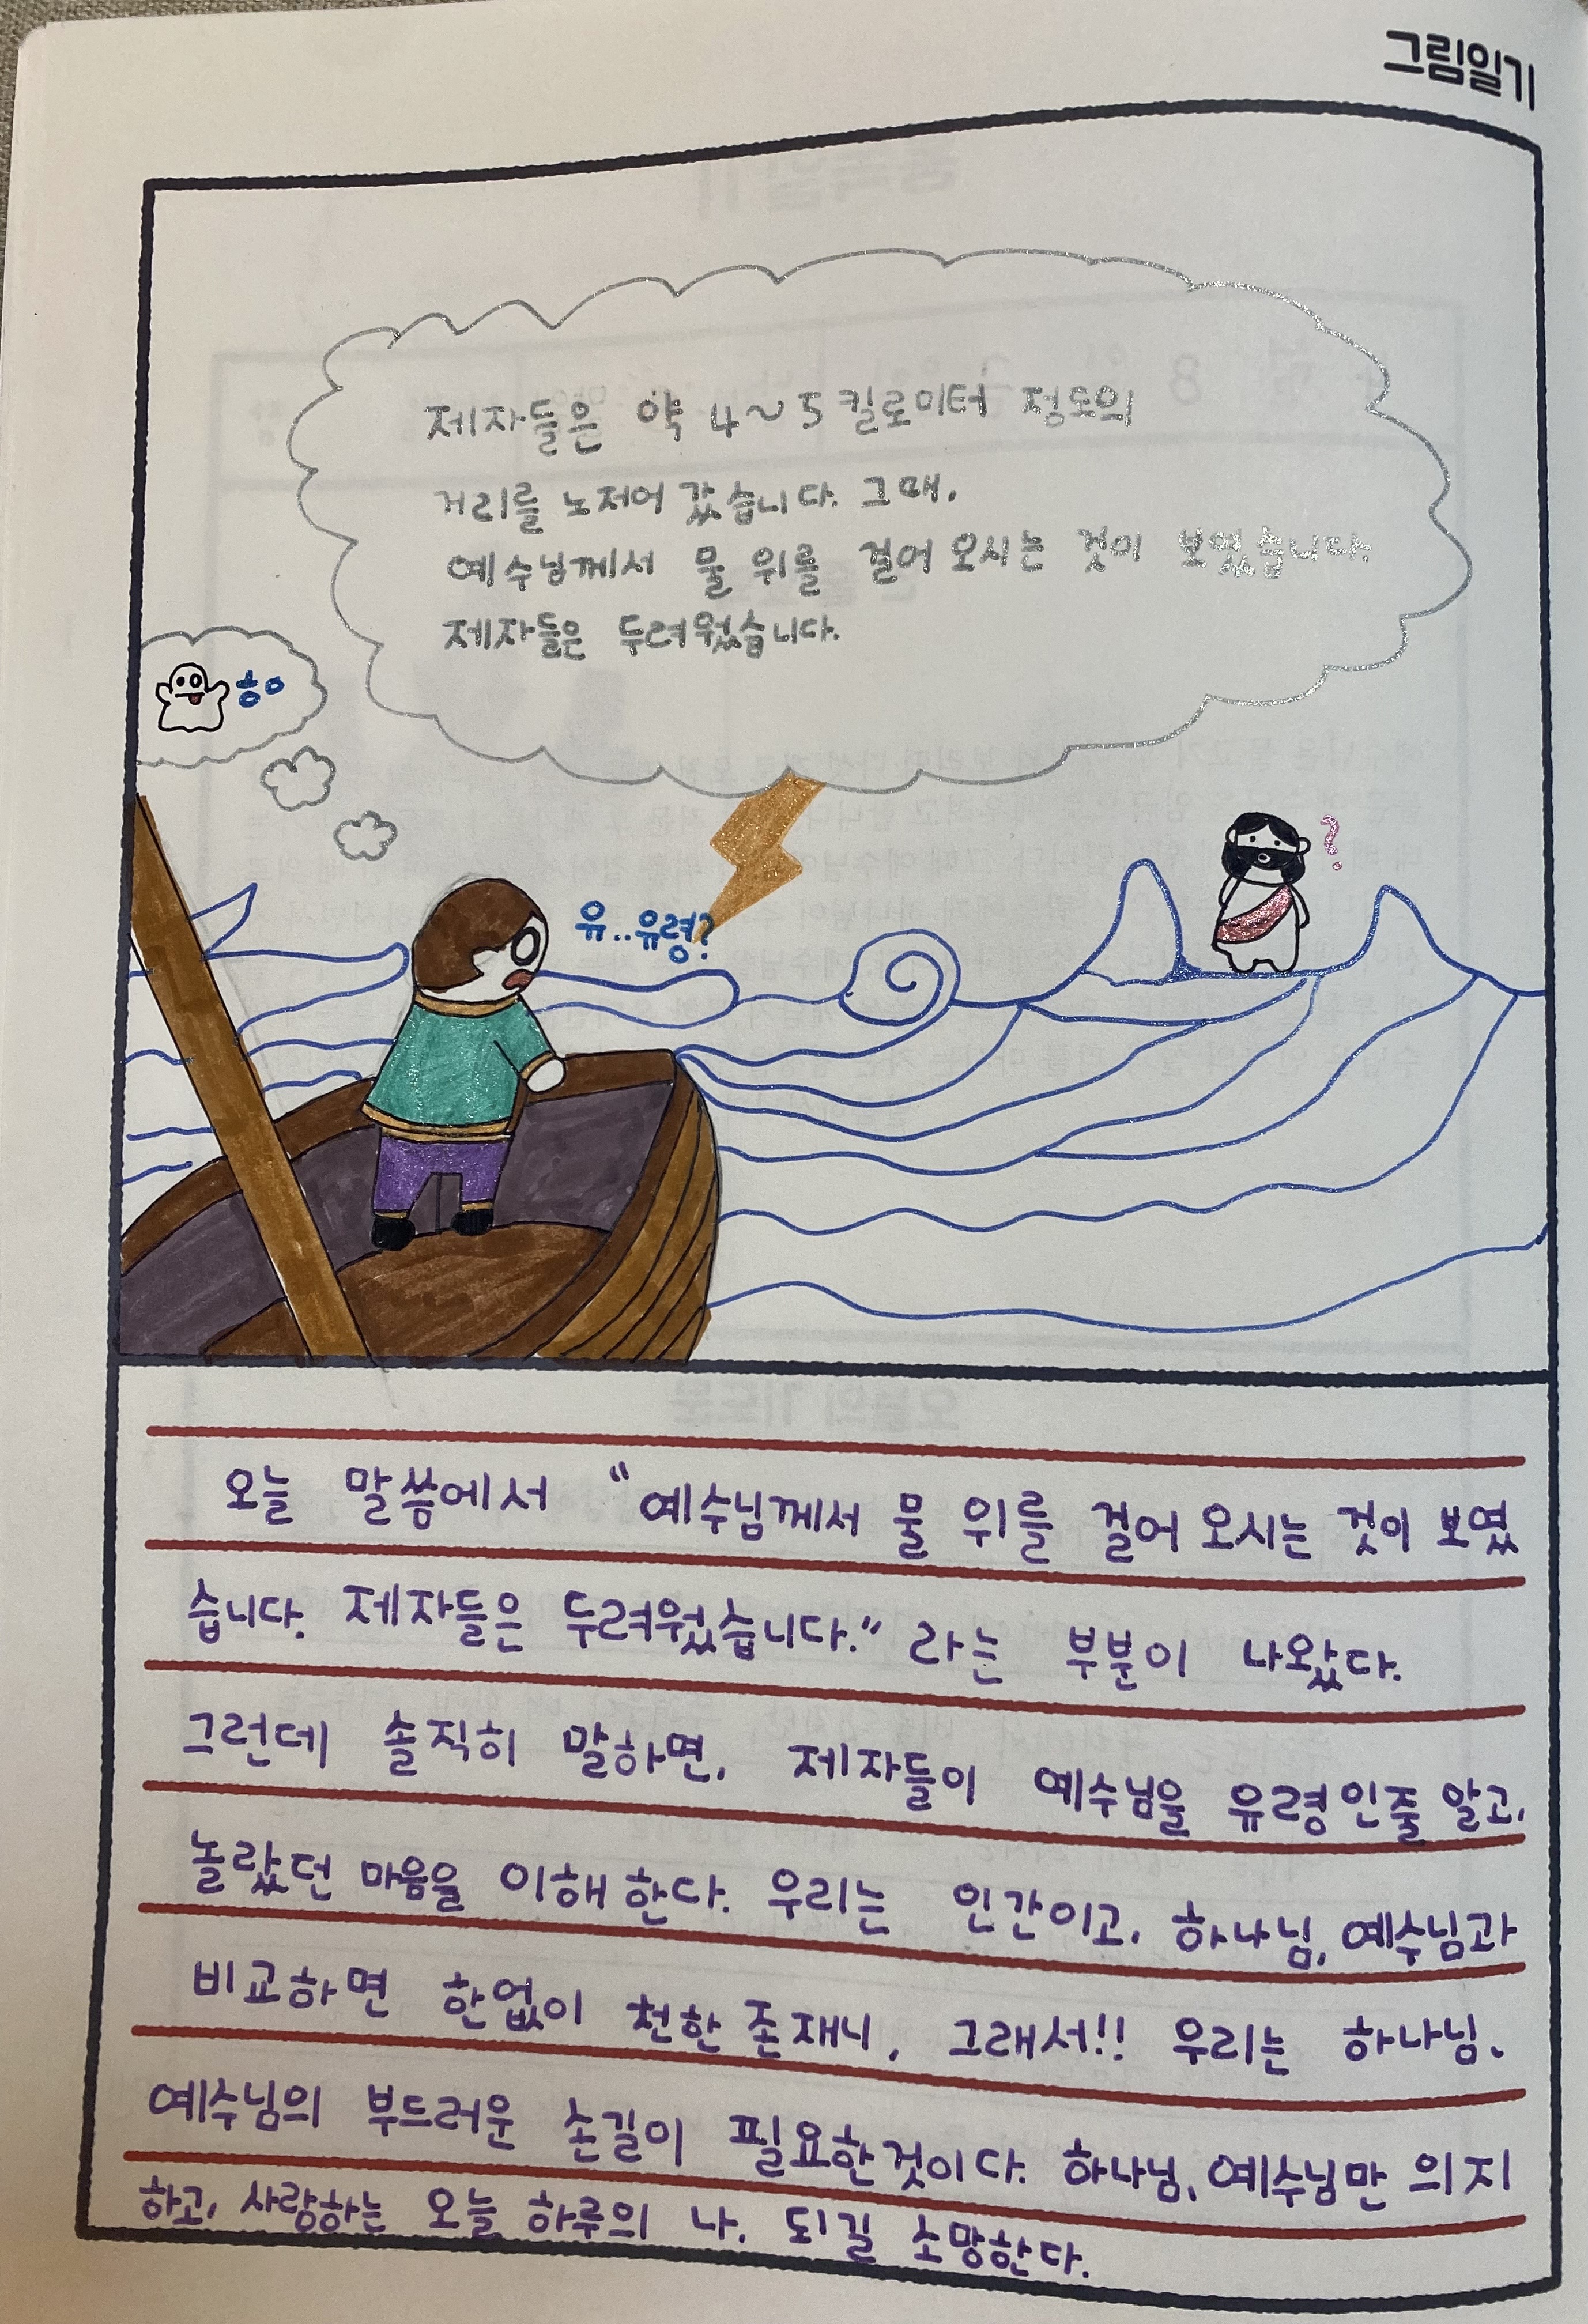 그림일기
제자들은 약 4~5킬로미터 정도의
거리를 노저어 갔습니다. 그때,
예수님께서 물 위를 걸어 오시는 것이 보였습니다.
제자들은 두려웠습니다.
유..유령?
?
오늘 말씀에서 "예수님께서 물 위를 걸어 오시는 것이 보였
습니다. 제자들은 두려웠습니다." 라는 부분이 나왔다.
그런데 솔직히 말하면, 제자들이 예수님을 유령인줄 알고,
놀랐던 마음을 이해 한다. 우리는 인간이고, 하나님, 예수님과
비교하면 한없이 천한 존재니, 그래서!! 우리는 하나님,
예수님의 부드러운 손길이 필요한것이다. 하나님, 예수님만 의지
하고, 사랑하는 오늘 하루의 나, 되길 소망한다.